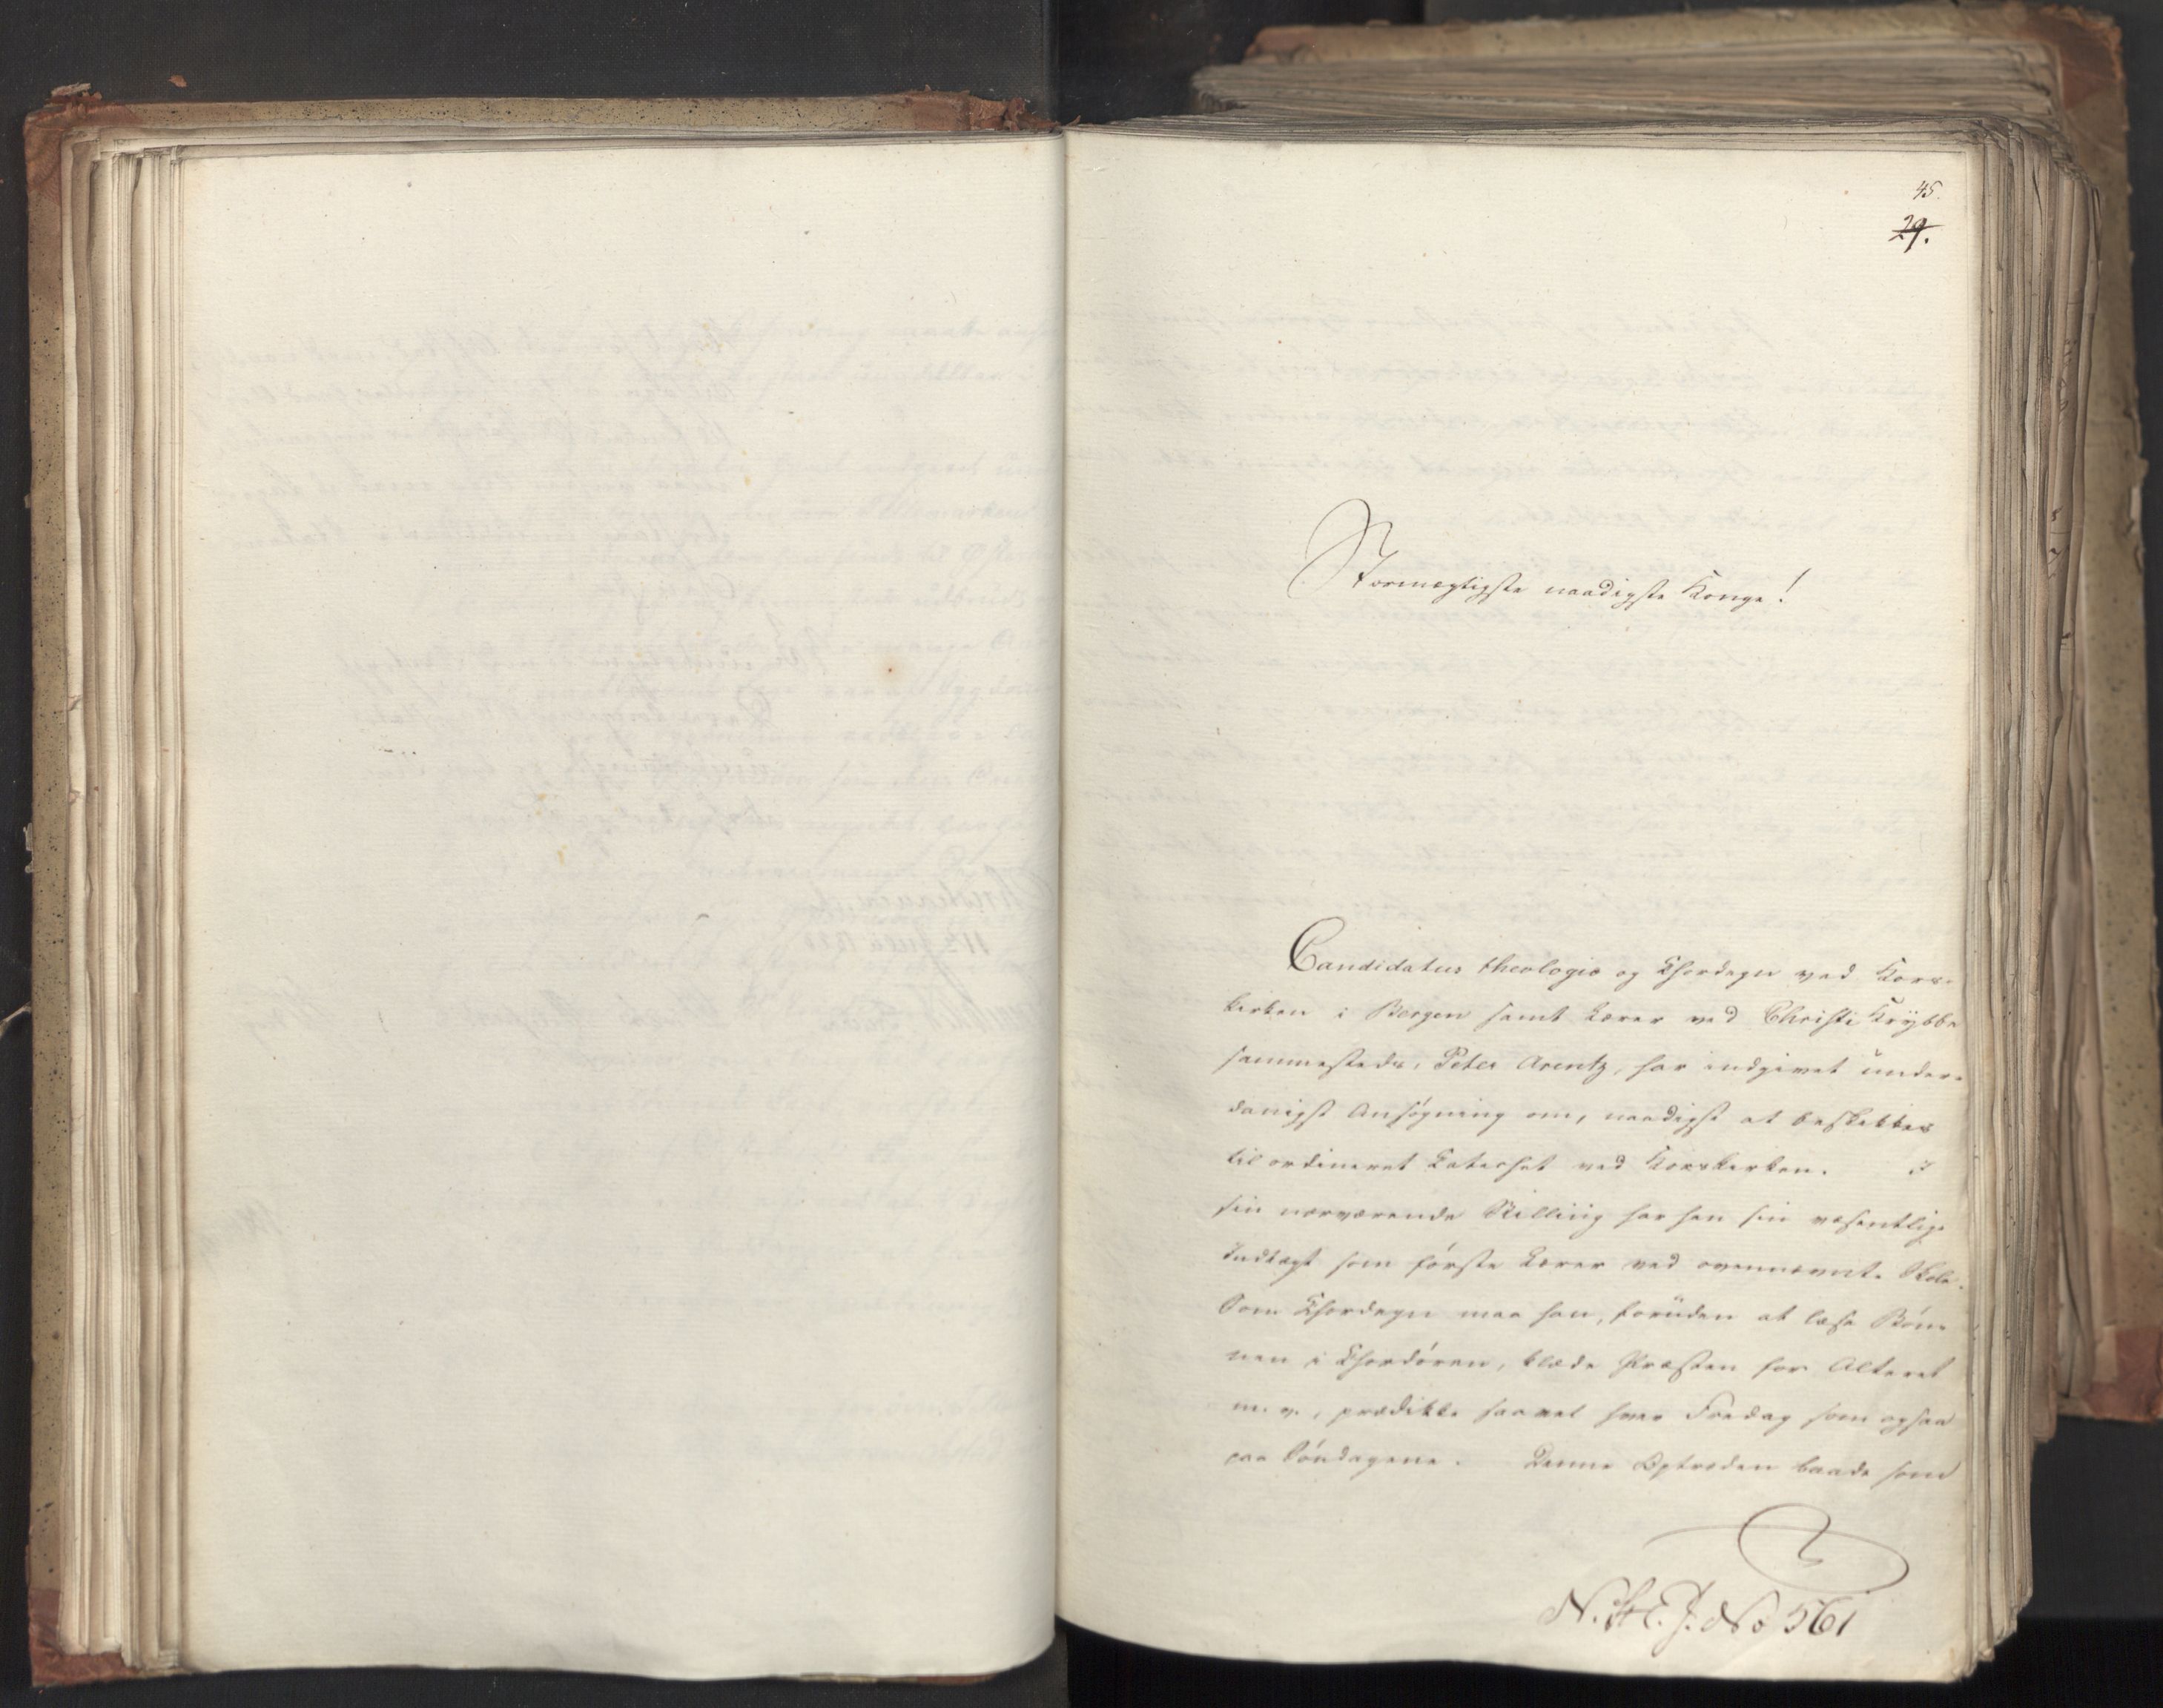 45.
29.
Stormægtigste naadigste Konge!
Candidatus theologiæ og Chordegn ved Kors-
kirken i Bergen samt Lærer ved Christi Krybbe
sammesteds, Peter Arentz, har indgivet under-
danigst Ansøgning om, naadigst at beskikkes
til ordineret Catechet ved Korskirken. I
sin nærværende Stilling har han sin væsentlige
Indtægt som første Lærer ved ovennævnte Skole.
Som Chordegn maa han, foruden at læse Bøn-
nen i Chordøren, klæde Præsten for Alteret
m. v., prædikke saavel hver Fredag som ogsaa
paa Søndagene. Denne Optræden baade som
N. St. E. J. No 561